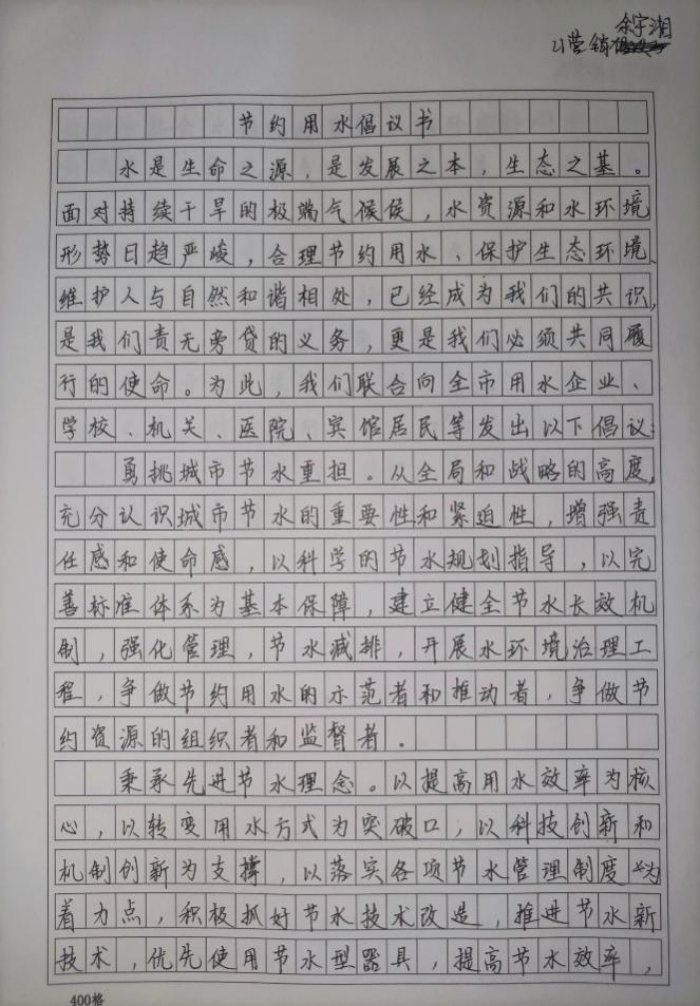 余宇湘
21营销
节约用水倡议书
水是生命之源，是发展之本，生态之基。
面对持续干旱的极端气候候，水资源和水环境
形势日趋严峻，合理节约用水、保护生态环境、
维护人与自然和谐相处，已经成为我们的共识，
是我们责无旁贷的义务，更是我们必须共同履
行的使命。为此，我们联合向全市用水企业、
学校、机关、医院、宾馆居民等发出以下倡议：
勇挑城市节水重担。从全局和战略的高度，
充分认识城市节水的重要性和紧迫性，增强责
任感和使命感，以科学的节水规划指导，以完
善标准体系为基本保障，建立健全节水长效机
制，强化管理，节水减排，开展水环境治理工
程，争做节约用水的示范者和推动者，争做节
约资源的组织者和监督者.
秉承先进节水理念。以提高用水效率为核
心，以转变用水方式为突破口，以科技创新和
机制创新为支撑，以落实各项节水管理制度为
着力点，积极抓好节水技术改造，推进节水新
技术，优先使用节水型器具，提高节水效率，
400格